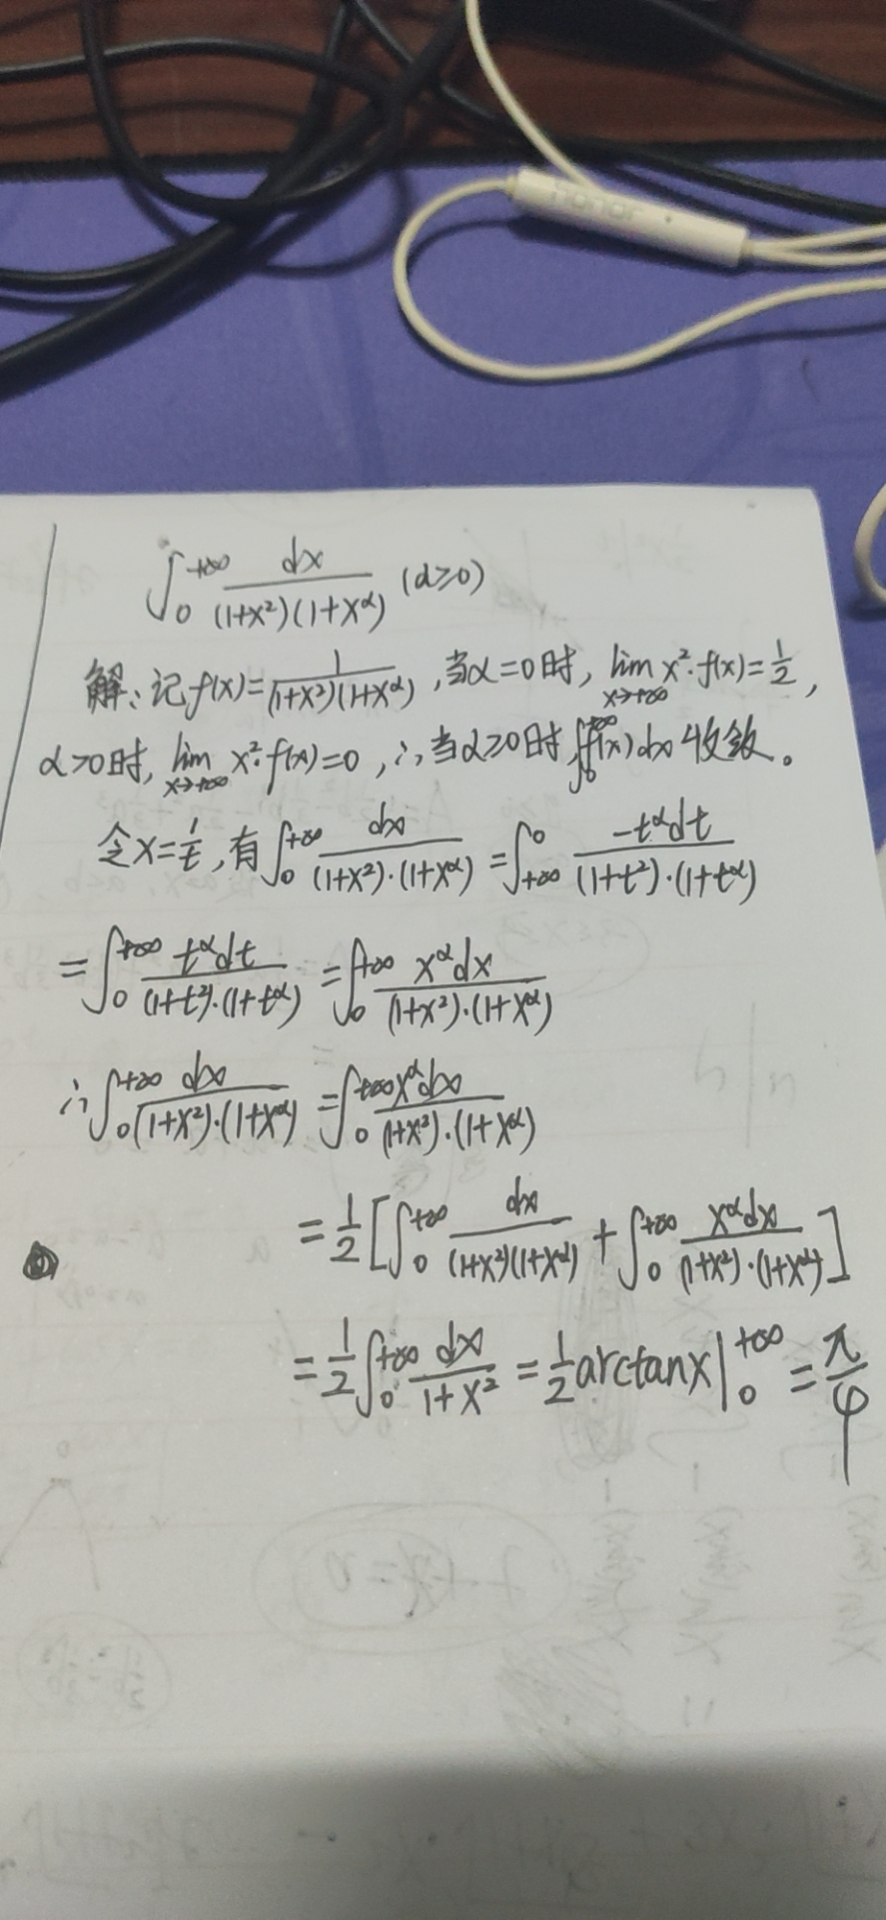 honor
∫₀^{+∞} dx/((1+x²)(1+x^α)) (α≥0)
解: 记f(x)=1/((1+x²)(1+x^α)), 当α=0时, lim_{x→+∞} x²·f(x)=1/2,
α>0时, lim_{x→+∞} x²·f(x)=0, ∴当α≥0时, ∫₀^{+∞}f(x)dx收敛。
令x=1/t, 有∫₀^{+∞} dx/((1+x²)·(1+x^α)) = ∫_{+∞}^0 -t^αdt/((1+t²)·(1+t^α))
=∫₀^{+∞} t^αdt/((1+t²)·(1+t^α)) =∫₀^{+∞} x^αdx/((1+x²)·(1+x^α))
∴∫₀^{+∞} dx/((1+x²)·(1+x^α)) =∫₀^{+∞} x^αdx/((1+x²)·(1+x^α))
=1/2[∫₀^{+∞} dx/((1+x²)(1+x^α)) + ∫₀^{+∞} x^αdx/((1+x²)·(1+x^α))]
=1/2∫₀^{+∞} dx/(1+x²) = 1/2 arctanx|₀^{+∞} = π/4